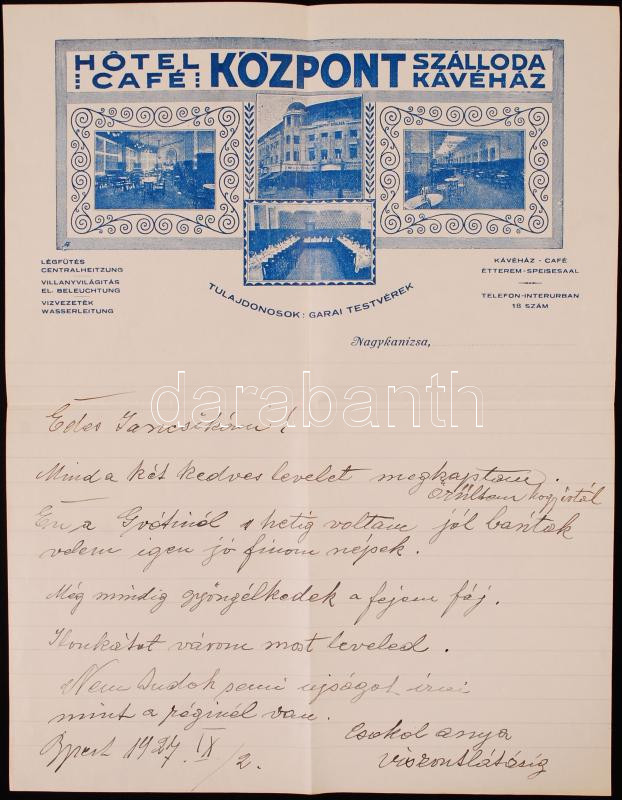 HÔTEL CAFÉ KÖZPONT SZÁLLODA KÁVÉHÁZ
LÉGFÜTÉS
CENTRALHEITZUNG
VILLANYVILÁGITÁS
EL. BELEUCHTUNG
VIZVEZETÉK
WASSERLEITUNG
TULAJDONOSOK: GARAI TESTVÉREK
KÁVÉHÁZ - CAFÉ
ÉTTEREM - SPEISESAAL
TELEFON-INTERURBAN
18 SZÁM
Nagykanizsa,
darabanth
Édes Jancsikám!
Mind a két kedves levelet megkaptam.
Örültem hogy írtál
Én a hétig voltam jól bántak
velem igen jó finom népek.
Még mindig gyöngélkedek a fejem fáj.
várom most leveled.
Nem tudok semi ujságot írni
mint a réginél van.
Csokol anya
viszontlátásig
Bpest 1927 IX/2.